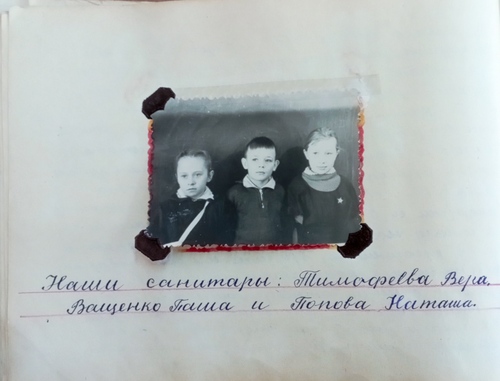 Наши санитары: Тимофеева Вера,
Ващенко Паша и Попова Наташа.